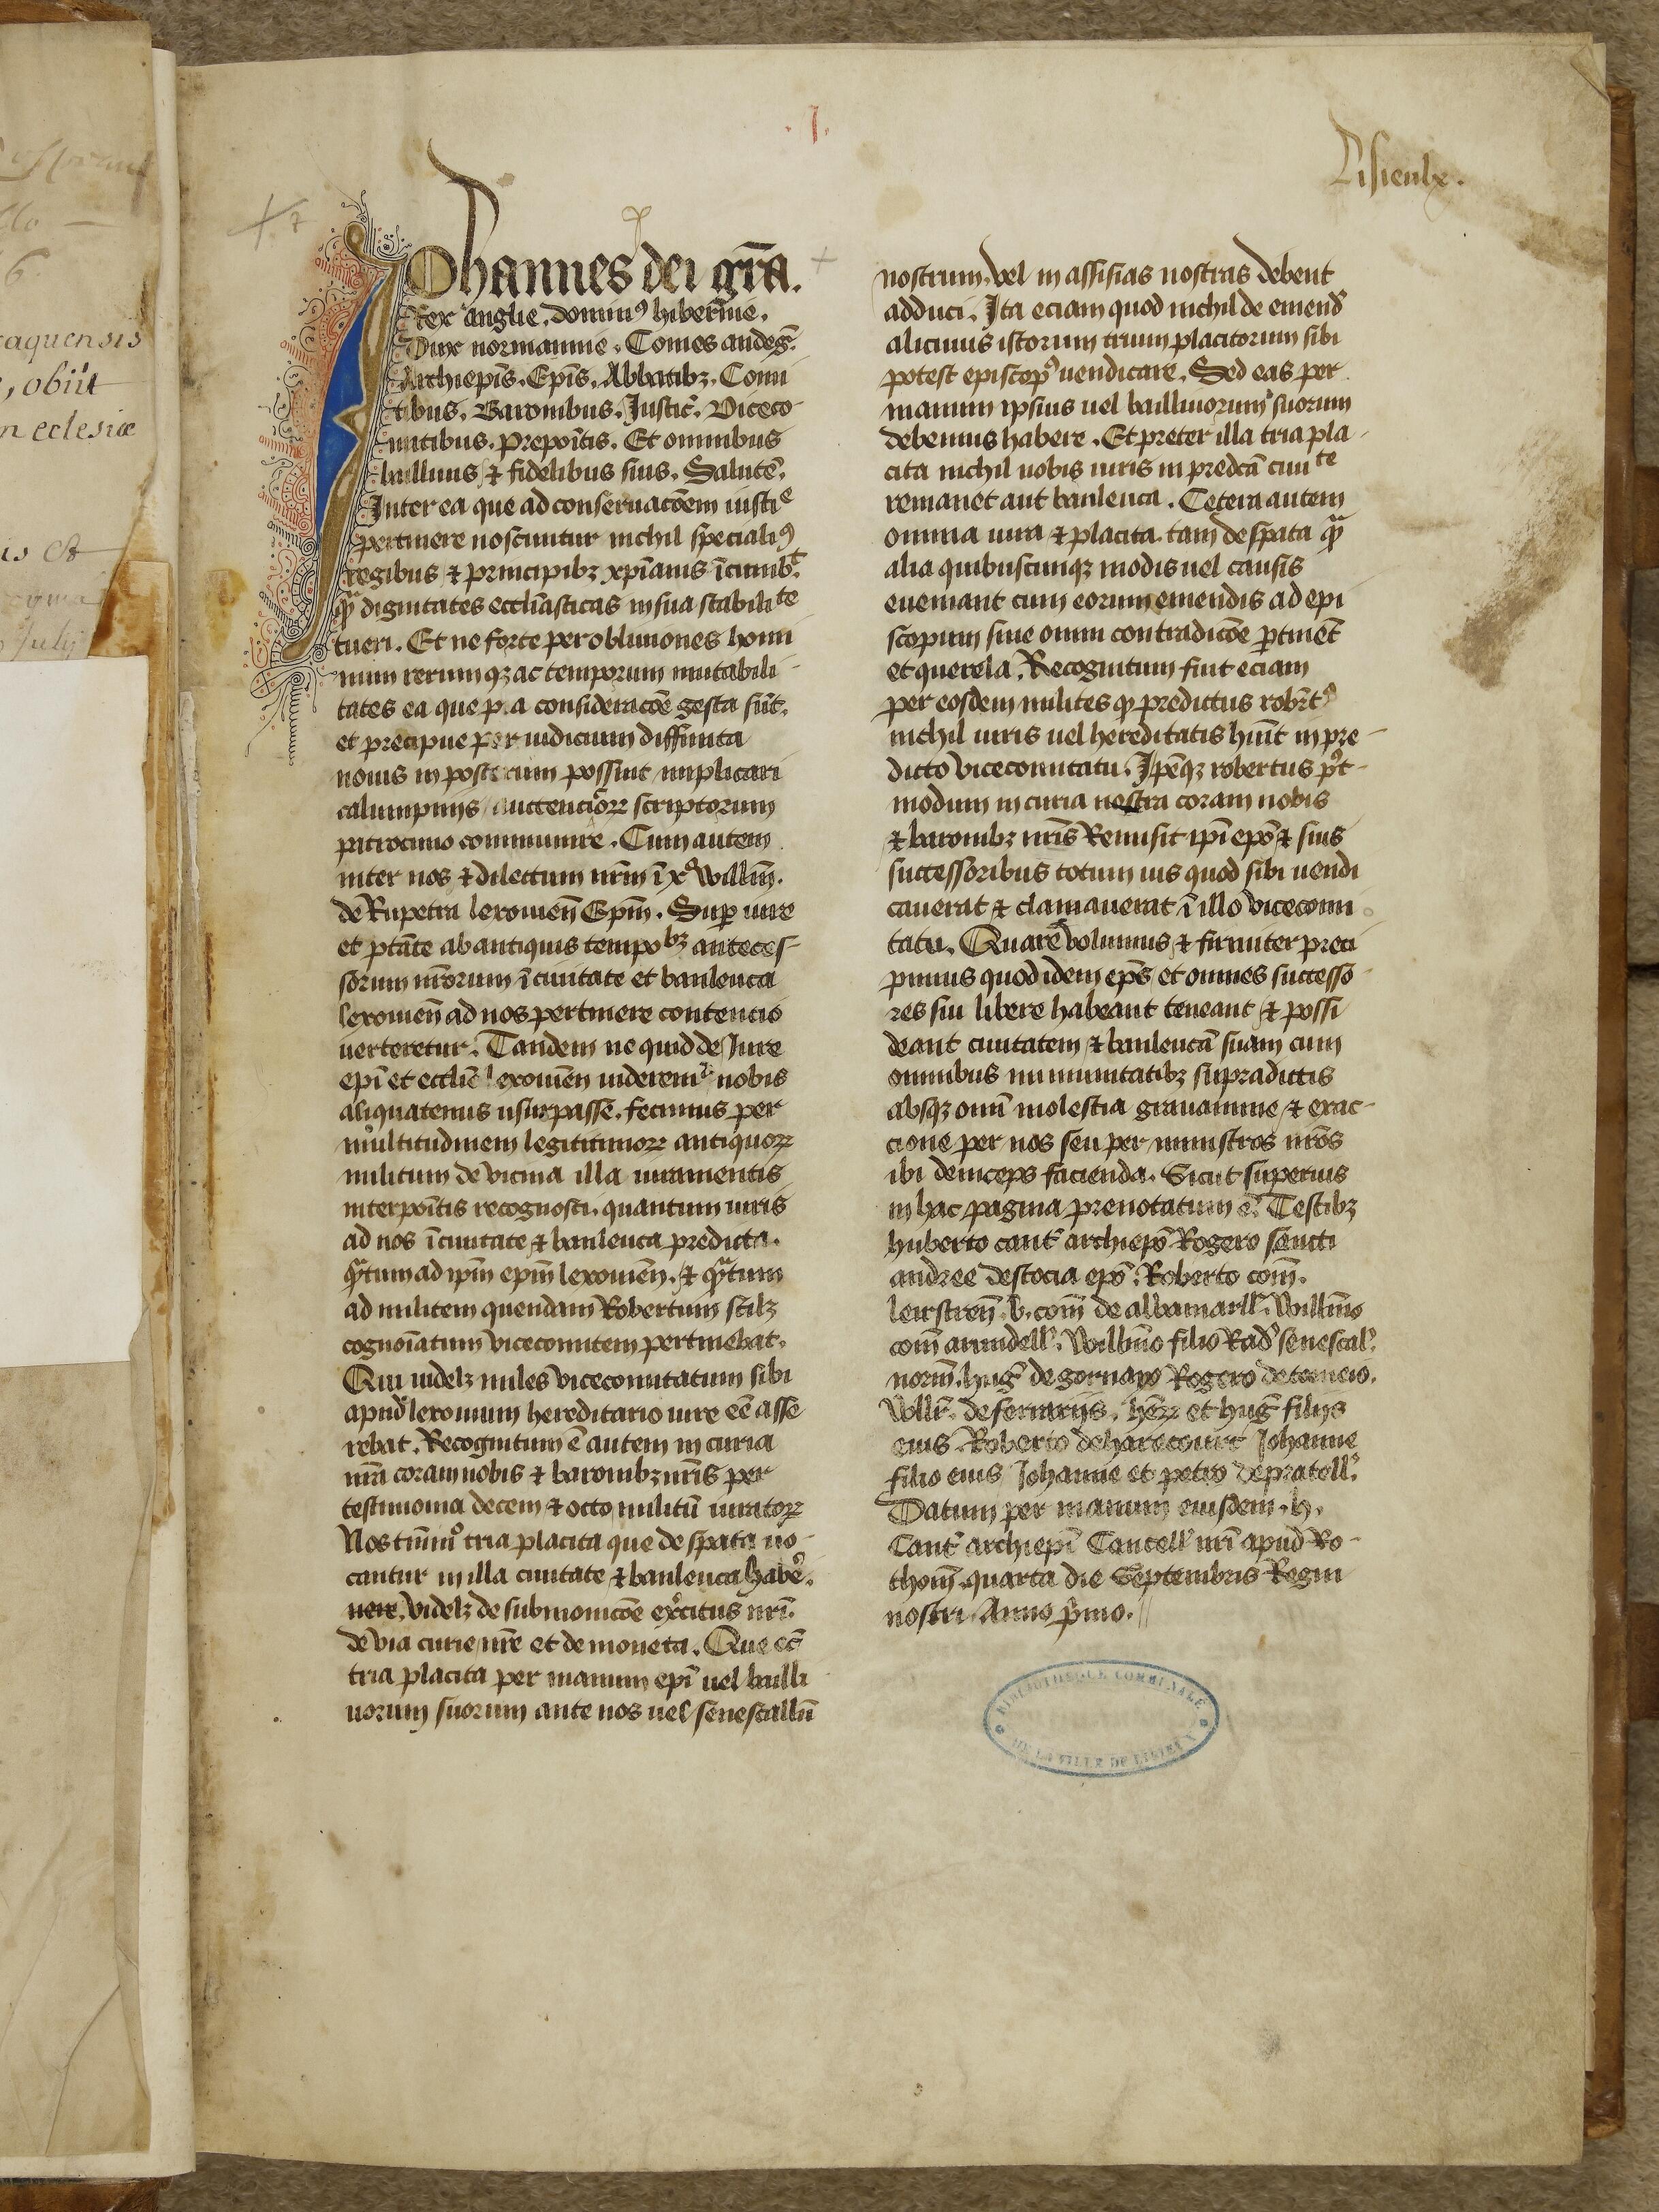 .I.
Lisieulx.
Johannes dei gr̃a.
Rex anglie. dominꝰ hibernie.
Dux normannie. Comes andeg̃.
Archiep̃is. Ep̃is. Abbatibꝫ. Comi
tibus. Baronibus. Justic̃. Viceco
mitibus. prepoĩtis. Et omnibus
balliuis ⁊ fidelibus suis. Salutẽ.
Inter ea que ad conseruac̃oem iustie
pertinere noscuntur nichil specialiꝰ
regibus ⁊ principibꝫ xp̃ianis ĩcumbt
qͣ dignitates eccl̃iasticas in sua stabilite
tueri. Et ne forte per obliuiones homi
num rerumqꝫ ac temporum mutabili-
tates ea que p.a consideracõe gesta sũt.
et precipue per iudicium diffinita
nouis in posterum possint implicari
calumpniis auctenticoꝝ scriptorum
patrocinio communire. Cum autem
inter nos ⁊ dilectum nr̃m ĩ xº Will̃m.
de Rupetra lexouien̄ Ep̃m. Suꝑ iure
et ptãte ab antiquis tempobꝫ anteces-
sorum nr̃orum ĩ ciuitate et banleuca
lexouien̄ ad nos pertinere contentio
verteretur. Tandem ne quid de Jure
ep̃i et eccl̃ie lexouien̄ uideremͬ nobis
aliquatenus usurpasse. fecimus per
multitudinem legitimioꝝ antiquoꝝ
militum de vicina illa iuramentis
interpoĩtis recognosci. quantum iuris
ad nos ĩ ciuitate ⁊ banleuca predicta.
qͣtum ad ip̃m ep̃m lexouien̄. ⁊ qͣtum
ad militem quendam Robertum scilꝫ
cognoĩatum vicecomitem pertinebat.
Qui uidelꝫ miles vicecomitatum sibi
apud lexouium hereditario iure eẽ asse
rebat. Recognitum ẽ autem in curia
nr̃a coram nobis ⁊ baronibꝫ nr̃is per
testimonia decem ⁊ octo militũ iuratoꝝ
Nos tm̃mº tria placita que de spata uo-
cantur in illa ciuitate ⁊ banleuca habẽ.
uere, videlꝫ de submonicõe exercitus nr̃i.
de via curie nr̃e et de moneta. Que ec̃
tria placita per manum ep̃i uel balli
uorum suorum ante nos uel senescallũ
nostrum. vel in assisias nostras debent
adduci. Ita eciam quod nichil de emend̃
alicuius istorum trium placitorum sibi
potest episcopꝰ uendicare. Sed eas per
manum ipsius uel balliuorum suorum
debemus habere. Et preter illa tria pla-
cita nichil nobis iuris in predcã ciuite
remanet aut banleuca. Cetera autem
omnia iura ⁊ placita tam de spata qͣ
alia quibuscunqꝫ modis uel causis
eueniant cum eorum emendis ad epi
scopum siue omni contradicõe ꝑtinet̃
et querela. Recognitum fuit eciam
per eosdem milites ꝙ predictus rob̃tꝰ
nichil iuris uel hereditatis hũit in pre-
dicto vicecomitatu. Ip̃eqꝫ robertus pꝰt-
modum in curia nostra coram nobis
⁊ baronibꝫ nr̃is Remisit ip̃i ep̃o ⁊ suis
successoribus totum ius quod sibi uendi
cauerat ⁊ clamauerat ĩ illo vicecomi
tatu. Quare volumus ⁊ firmiter preci
pimus quod idem ep̃s et omnes successo-
res sui libere habeant teneant ⁊ possi
deant ciuitatem ⁊ banleucã suam cum
omnibus immunitatibꝫ supradictis
absqꝫ omĩ molestia grauamine ⁊ exac-
cione per nos seu per ministros nr̃os
ibi deinceps facienda. Sicut superius
in hac pagina prenotatum ẽ. Testibꝫ
huberto cant̃ archiep̃o Rogero sancti
andree de scocia ep̃o. Roberto com̃.
leircestren̄. b. com̃ de albamarll̃. Will̃mo
com̃ arundell̃. Will̃mo filio Rad̃ senescal̃.
norm̃. hug̃ de gornayo Rogero de toneio.
Will̃. de ferrariis. hẽꝝ et hug̃ filiis
eius. Roberto de harecourt Johanne
filio eius Johanne et petro de pratell̃.
Datum per manum eiusdem. h.
Cant̃ archiep̃i Cancell̃ nr̃i apud Ro-
thom̃. quarta die Septembris Regni
nostri. Anno p̃mo.
BIBLIOTHEQUE COMMUNALE
DE LA VILLE DE LISIEUX
aquensis
, obiit
n eclesiæ
is est
July